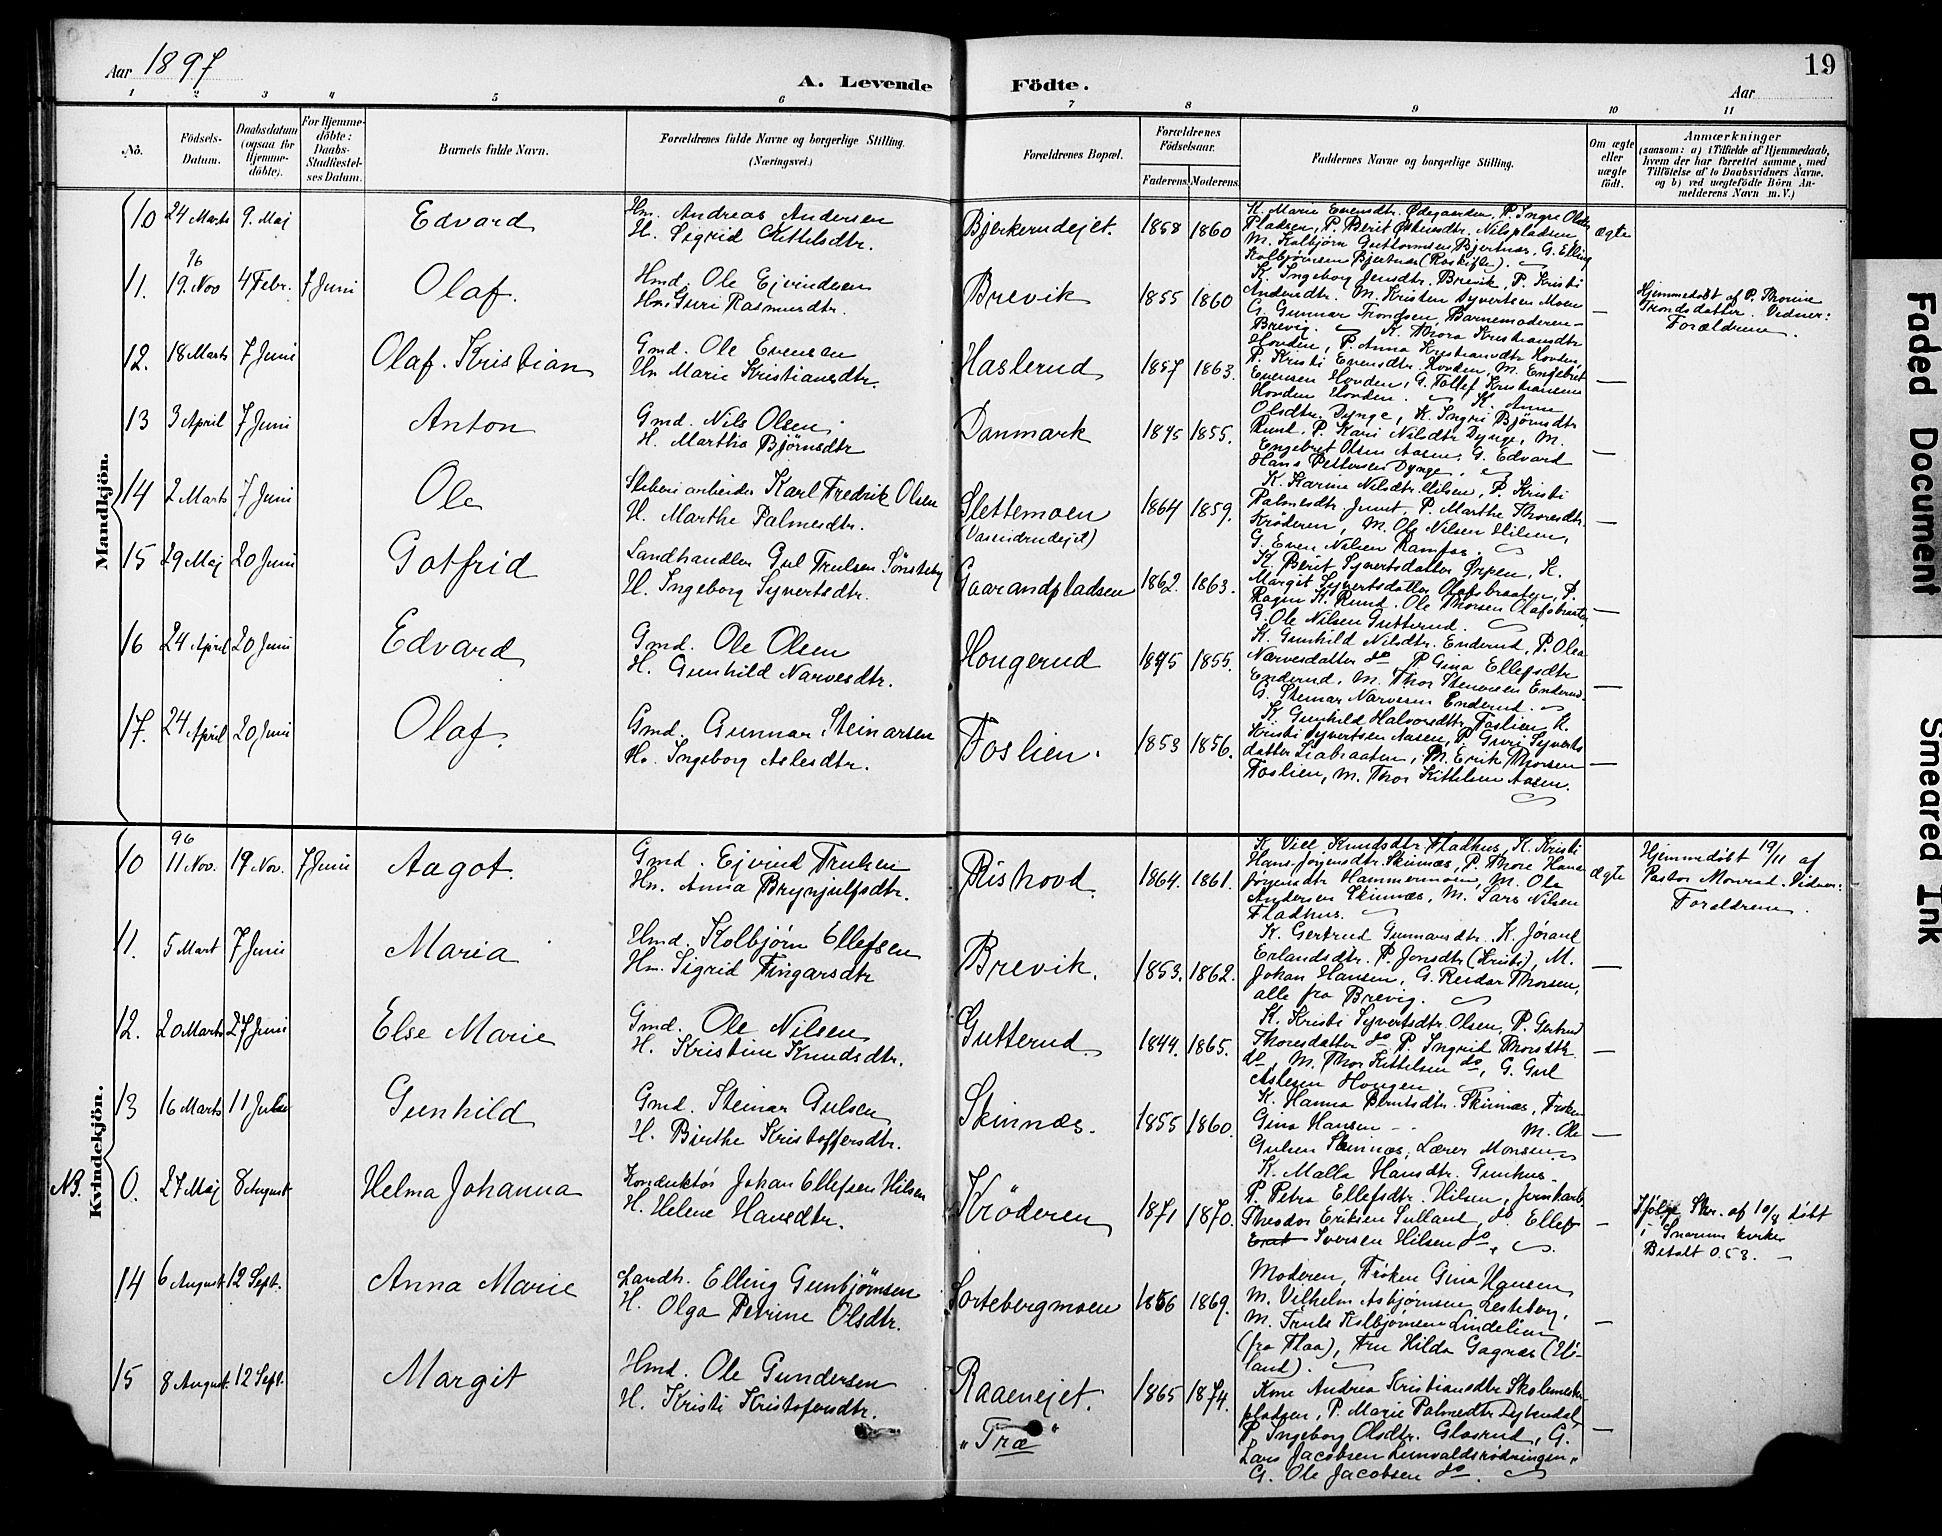 Aar 1897
A. Levende Födte.
Aar
19
1 2 3 4 5 6 7 8 9 10 11
No.
Födsels-Datum.
Daabsdatum (ogsaa for Hjemme-döbte).
For Hjemme-döbte: Daabs-Stadfæstel-ses Datum.
Barnets fulde Navn.
Forældrenes fulde Navne og borgerlige Stilling.
(Næringsvei.)
Forældrenes Bopæl.
Forældrenes Födselsaar.
Faderens. Moderens.
Faddernes Navne og borgerlige Stilling.
Om ægte eller uægte födt.
Anmærkninger
(saasom: a) i Tilfælde af Hjemmedaab,
hvem der har forrettet samme, med
Tilföielse af to Daabsvidners Navne,
og b) ved uegtefödte Börn An-
melderens Navn m.V.)
Mandkjön.
10 24 Marts 9. Maj Edvard
Hm. Andreas Andersen
H. Sigrid Kittelsdtr.
Bjerkerudejet. 1858 1860
K. Marie Evensdtr. Ødegaarden, P. Ingri Olsdtr
Pladsen, P. Berit Østensdtr. Nilspladsen
M. Kolbjörn Guttormsen Bjertnæs, G. Elling
Kolbjörnsen Bjertnæs (Roskifte).
ægte
11. 96 19. Nov 4 Febr. 7 Juni Olaf.
Hmd. Ole Ejvindsen
Hn. Guri Rasmusdtr.
Brevik 1855 1860
K. Ingeborg Jensdtr. Brevik, P. Kristi
Andersdtr. M. Kristen Syvertsen Moen
G. Gunnar Trondsen, Barnemoderen –
Brevig.
—
Hjemmedöbt af P. Thonine
Trondsdatter. Vidner:
Forældrene.
12. 18 Marts 7 Juni Olaf. Kristian
Gmd. Ole Evensen
Hn Marie Kristiansdtr.
Haslerud 1857 1863.
K. Thora Kristiansdtr
Hovden, P. Anna Kristiansdtr Hovden,
P. Kristi Evensdtr. Hovden, M. Engebret
Evensen Hovden, G. Tollef Kristiansen
Hovden Hovden.
—
13 3 April 7 Juni Anton
Gmd. Nils Olsen
H. Martha Björnsdtr
Danmark 1845 1855.
K. Anne
Olsdtr. Dynge, K. Ingri Björnsdtr
Rund, P. Kari Nilsdtr Dynge, M.
Engebret Olsen Aasen, G. Edvard
Hans Pettersen Dynge.
—
14 2 Marts 7 Juni Ole
Sliberiarbeider Karl Fredrik Olsen
H. Marthe Palmesdtr.
Slettemoen 1864 1859.
(Vasendrudejet)
K. Karine Nilsdtr. Hilsen, P. Kristi
Palmesdtr Juvet, P. Marthe Thoresdtr.
Kröderen, M. Ole Nilsen Hilsen,
G. Even Nilsen Ramfos.
—
15 29 Maj 20 Juni Gotfrid
Landhandler Gul Trulsen Sönsteby
H. Ingeborg Syvertsdtr.
Gaarandpladsen 1862. 1863.
K. Berit Syvertsdatter Ørpen, K.
Margit Syvertsdatter Olafsbraaten, P.
Ragna K. Rund. Ole Thorsen Olafsbraaten
G. Ole Nilsen Gutterud.
—
16 24 April 20 Juni Edvard
Gmd. Ole Olsen
H. Gunhild Narvesdtr.
Hougerud 1845 1855.
K. Gunhild Nilsdtr. Enderud, P. Olea
Narvesdatter do, P. Gina Ellefsdtr
Enderud, M. Thor Stenersen Enderud
G. Steinar Narvesen Enderud.
—
17. 24 April 20 Juni Olaf.
Gmd. Gunnar Steinarsen
H. Ingeborg Aslesdtr.
Foslien. 1853 1856.
K. Gunhild Halvorsdtr Foslien K.
Kristi Syvertsen Aasen, P. Guri Syverts
datter Liabraaten, M. Erik Thorsen
Foslien, M. Thor Kittelsen Aasen.
—
Kvindekjön.
10 96 11 Nov. 19 Nov. 7 Juni Aagot.
Gmd. Ejvind Trulsen
Hn. Anna Brynjulfsdtr.
Rishovd. 1864. 1861.
K. Viel Knudsdtr Fladhus, K. Kristi
Hans Jörgensdtr. Skinnæs, P. Thore Hans
Jörgensdtr Hammermoen, M. Ole
Andersen Skinnæs, M. Lars Nilsen
Fladhus.
ægte
Hjemmedöbt 19/11 af
Pastor Monrad. Vidner:
Forældrene.
11. 5 Mart 7 Juni Maria
Hmd. Kolbjörn Ellefsen
Hn. Sigrid Fingarsdtr
Brevik. 1853. 1862.
K. Gertrud Gunnarsdtr. K. Jörand
Erlandsdtr. P. Jonsdtr (Kristi), M.
Johan Hansen, G. Reidar Thorsen,
alle fra Brevig.
—
12. 20 Marts 27 Juni Else Marie
Gmd. Ole Nilsen
H. Kristine Knudsdtr.
Gutterud. 1844. 1865.
K. Kristi Syvertsdtr. Olsen, P. Gertrud
Thoresdatter do P. Ingrid Thorsdtr.
do, M. Thor Kittelsen do, G. Gul
Aslesen Hougen.
—
13 16 Marts 11 Juli Gunhild
Gmd. Steinar Gulsen
H. Birthe Kristoffersdtr.
Skinnæs. 1855 1860.
K. Hanna Berntsdtr. Skinnæs, Frøken
Gina Hansen – M. Ole
Gulsen Skinnæs, Lærer Monsen
—
NB. 0. 27 Maj 8 August Helma Johanna
Konduktör Johan Ellefsen Hilsen
H. Helene Hansdtr.
Kröderen 1871 1870.
K. Malla Hansdtr. Gunhus.
P. Petra Ellefsdtr. Hilsen, Jernbarb.
Theodor Eriksen Sulland, do. Ellef
Iversen Hilsen do,
–
Ifölge Skr. af 10/8 döbt
i Snarum kirke
Betalt 0.58. –
14 6 August 12 Sept. Anna Marie
Landh. Elling Gunbjörnsen
H. Olga Petrine Olsdtr.
Sortebergmoen 1866 1869.
Moderen, Frøken Gina Hansen,
M. Vilhelm Asbjörnsen Lesteberg,
M. Truls Kolbjörnsen Lindelien
(fra Flaa), Fru Hilda Gagnæs (Ul-
land).
–
15 8 August 12 Sept. Margit
Hmd. Ole Gundersen
H. Kristi Kristofersdtr.
Raaenejet. 1865 1874.
"Træ"
Kone Andrea Kristiansdtr Skolemester
pladsen, P. Marie Palmesdtr Dybendal,
P. Ingeborg Olsdtr. Glesrud, G.
Lars Jacobsen Lunvaldsrödningen,
G. Ole Jacobsen do.
–
Faded Document
Smeared Ink